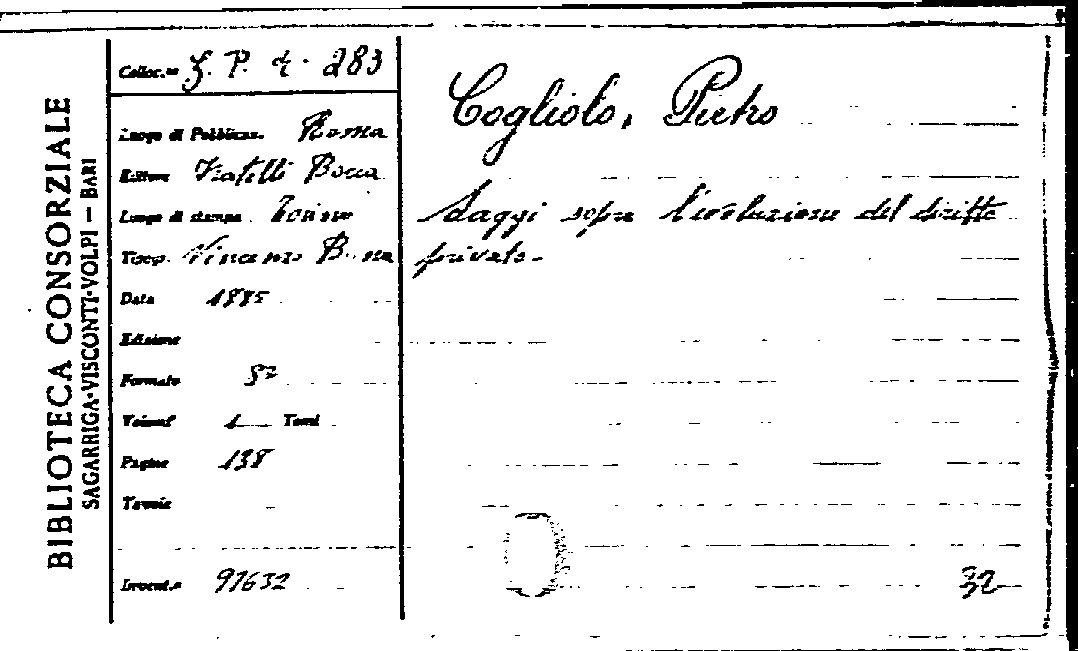 BIBLIOTECA CONSORZIALE
SAGARRIGA-VISCONTI-VOLPI — BARI
Colloc.ne P. 283
Luogo di Pubblicaz. Roma
Editore Fratelli Bocca
Luogo di stampa Torino
Tipogr. Vincenzo Bona
Data 1885
Edizione
Formato 8°
Volumi 1 Tomi
Pagine 138
Tavole
Invent.o 97632
Cogliolo, Pietro
Saggi sopra l'evoluzione del diritto
privato.
32